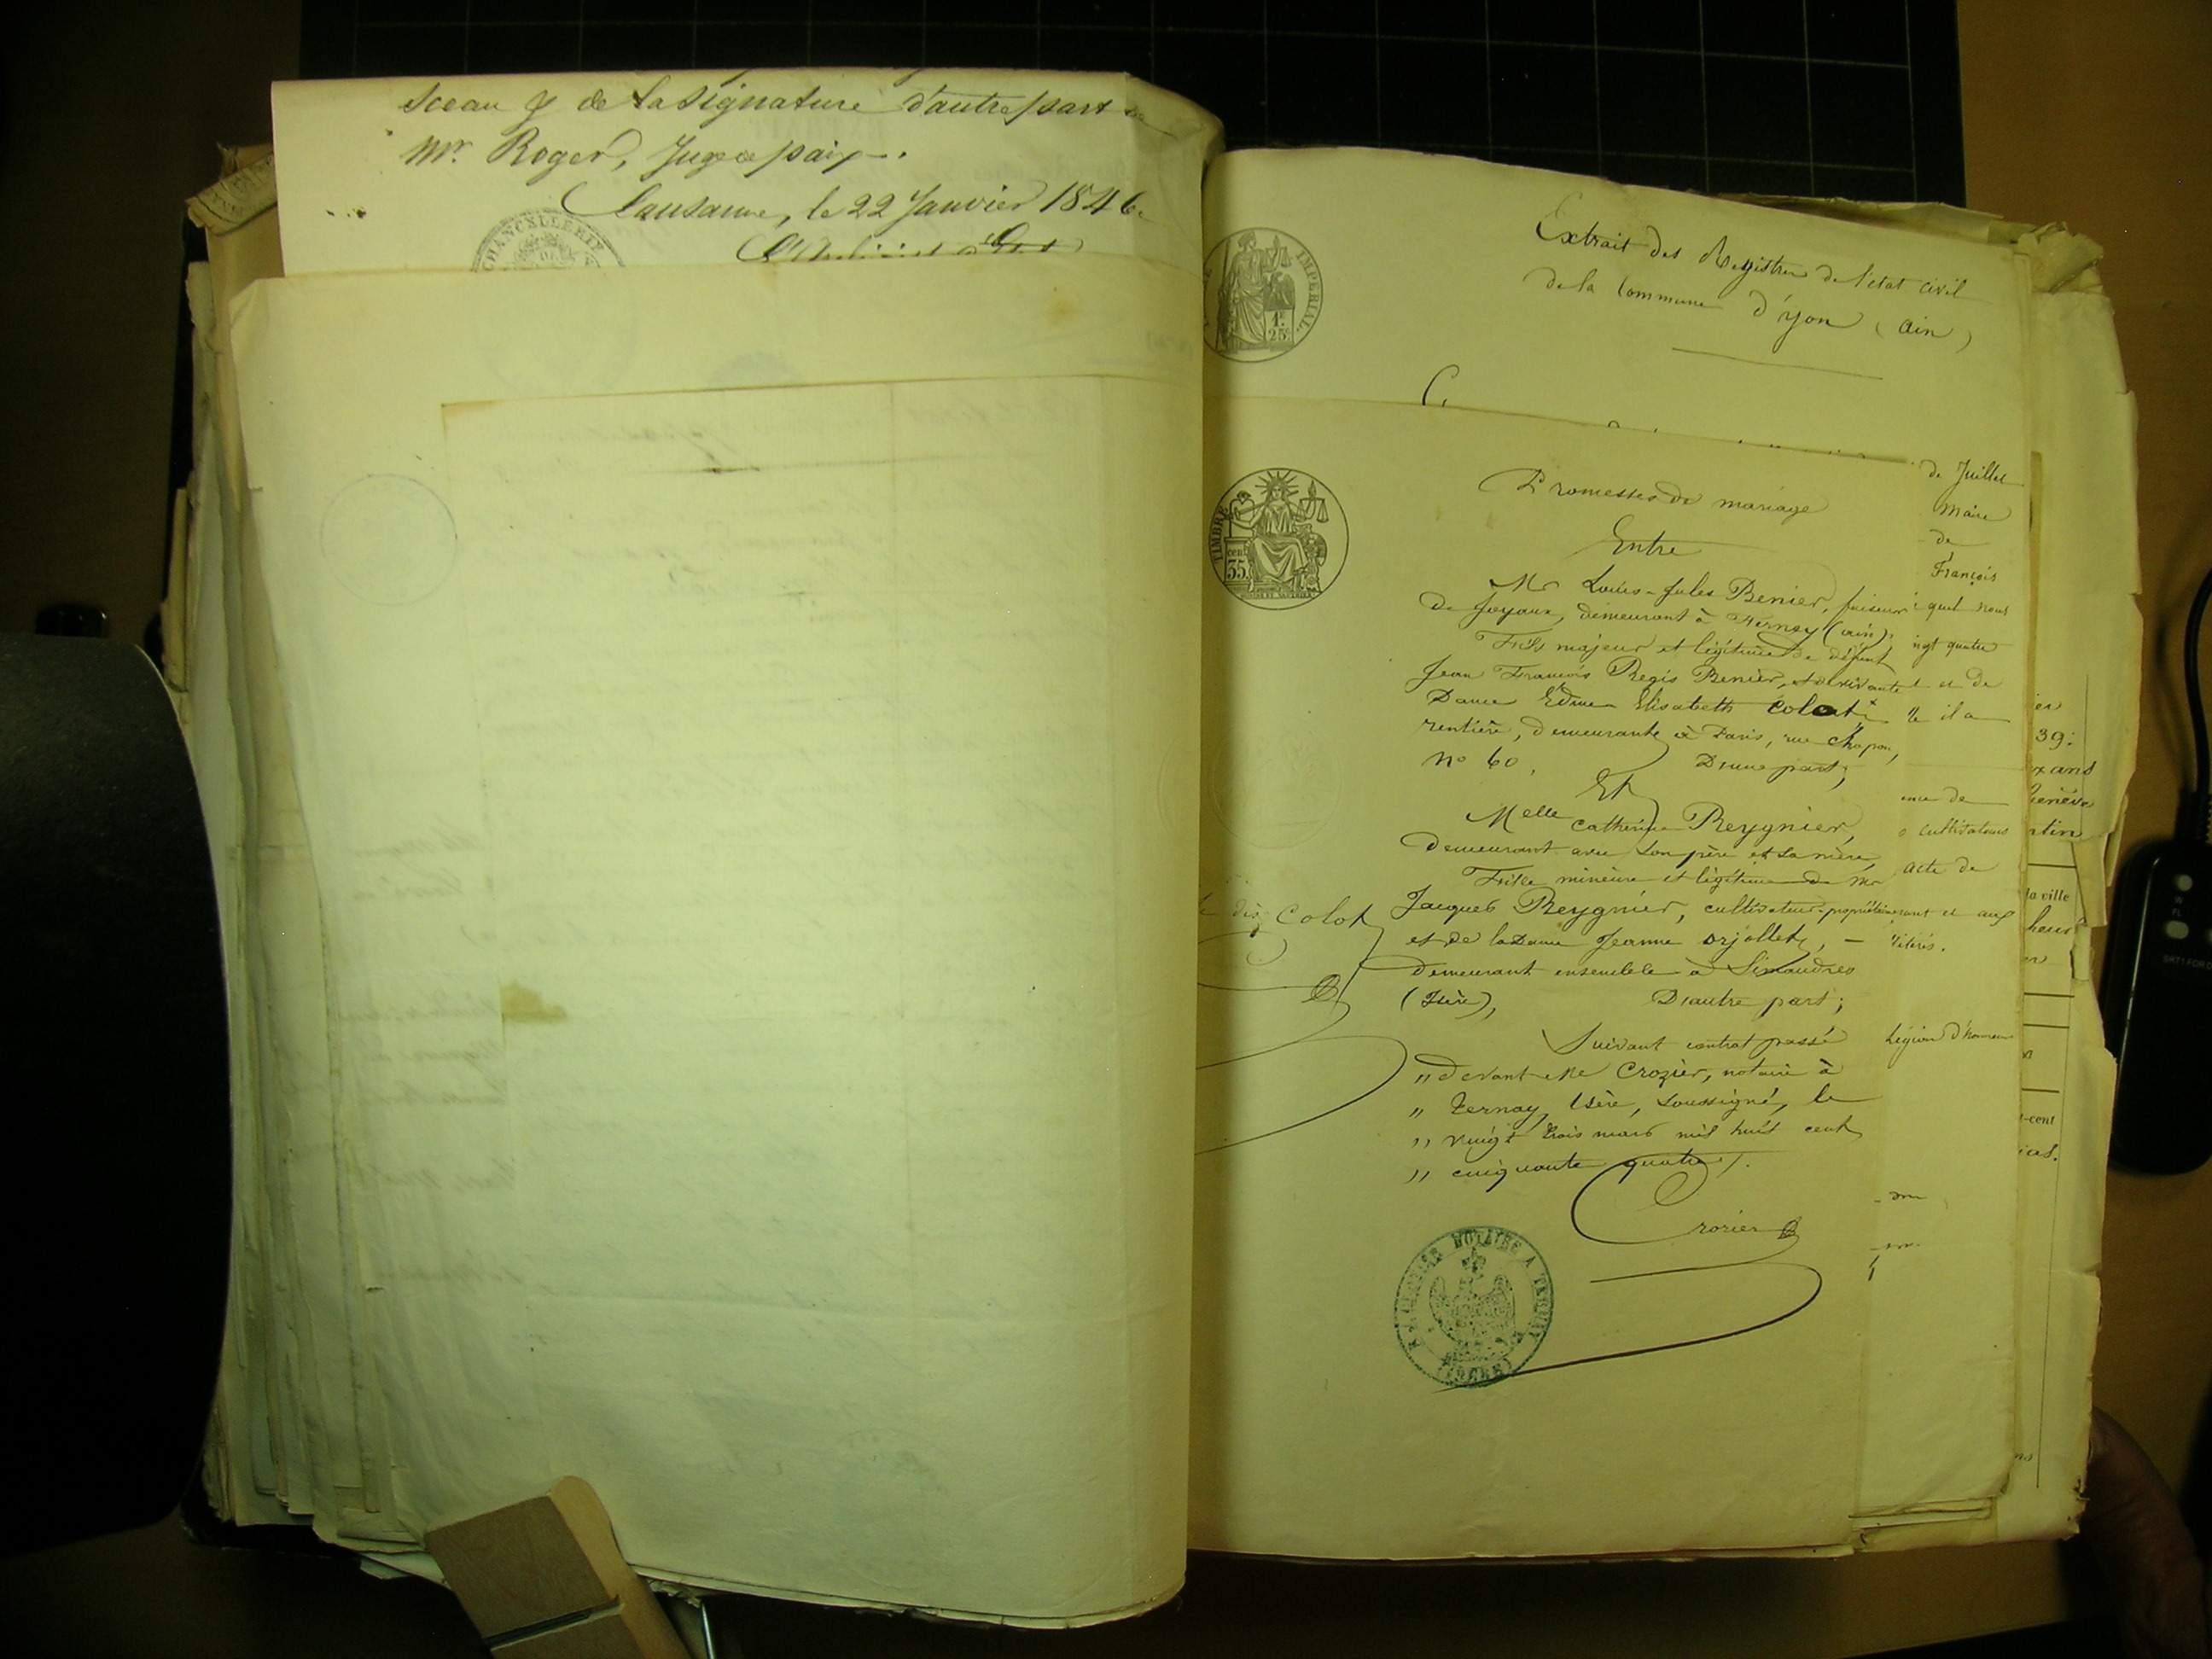 Sceau & de la Signature d'autre part de
Mr. Roger, Juge de paix.
Lausanne, le 22 Janvier 1846.
CHANCELLERIE
IMPERIAL.
1f.
25c
Extrait des Registres de l'état civil
de la Commune d'yon (ain)
TIMBRE
cent
35
Promesses de mariage
Entre
Mr Louis-Jules Benier, faiseur
de Joyaux, demeurant à Ferney (ain).
Fils majeur et légitime de défunt
Jean François Regis Benier, et de vivante
Dame Edmé Elisabeth Colot
rentière, demeurante à Paris, rue chapon,
No 60, D'une part;
Et
Melle Catherine Reygnier,
Demeurant avec son père et sa mère,
Fille mineure et légitime de Mr
Jacques Reygnier, cultivateur-propriétaire
et de la Dame Jeanne Orjollet, —
demeurant ensemble à Simandres
(Isère), D'autre part;
Suivant contrat passé
" devant Me Crozier, notaire à
" Ternay, Isère, soussigné, le
" vingt trois mars mil huit cent
" cinquante quatre /.
Crozier
NOTAIRE A TERNAY
(ISERE)
Colot
de Juillet
Maire
de
François
quel nous
ingt quatre
et de
il a
de
cultivateurs
acte de
et aux
Légion d'honneur
er
39:
x ans
Genève
rtin
la ville
heur
er
t-cent